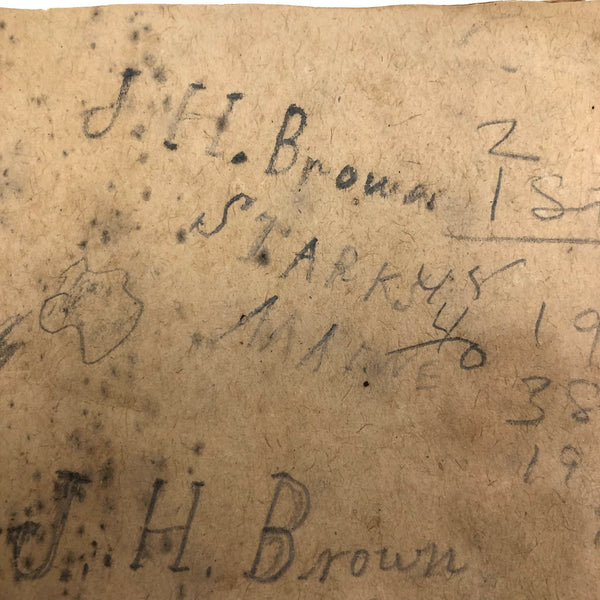 J. H. Brown
STARKS
MAINE
2
18
45
40
19
38
19
J. H. Brown